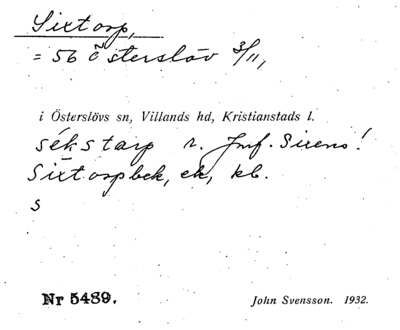 Sixtorp,
= 56 Österslöv 3/11,
i Österslövs sn, Villands hd, Kristianstads l.
sékstarp r. Jmf. Sirens!
Sixtorpbek, ek, kb.
s
Nr 5489. John Svensson. 1932.